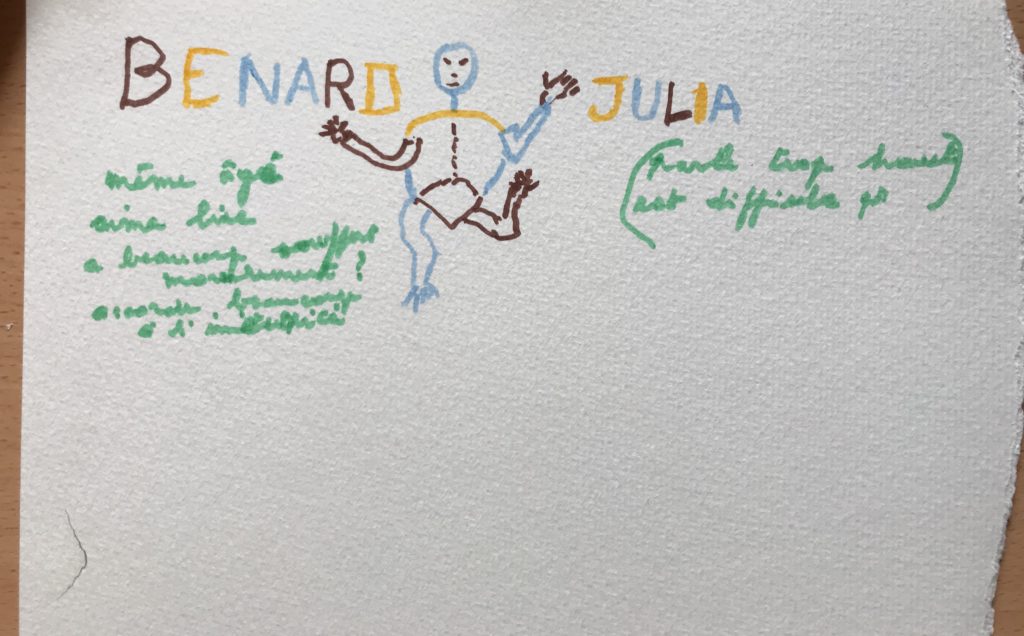 BENARD JULIA
même âgé
aime lire
a beaucoup souffert
moralement ?
accorde beaucoup
à
(parle trop
est difficile